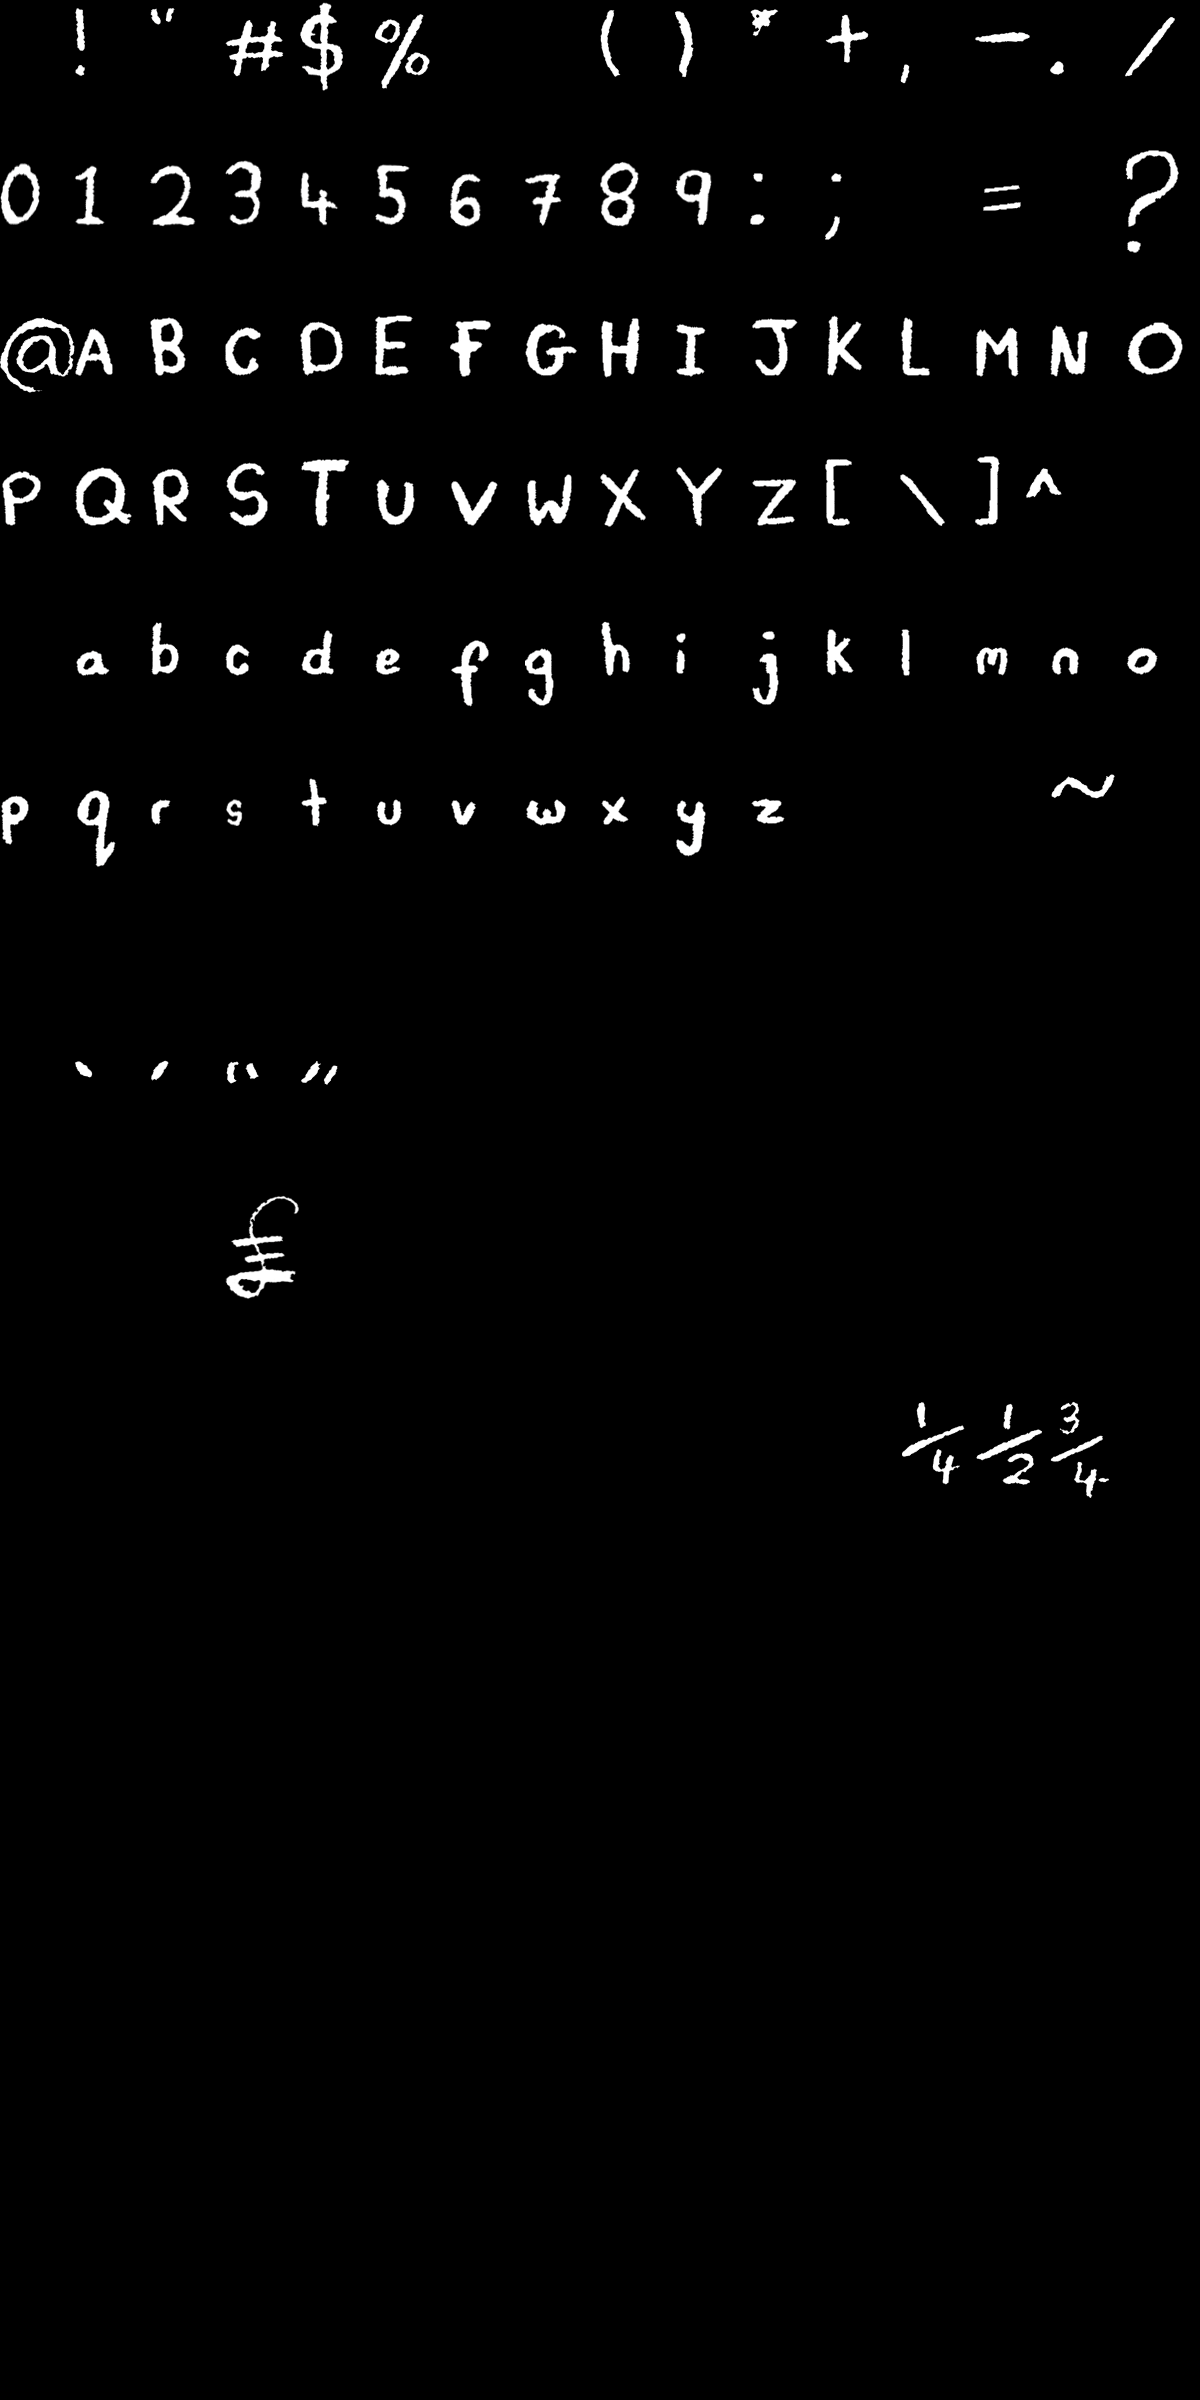 ! " # $ % ( ) * + , - . /
0 1 2 3 4 5 6 7 8 9 : ; = ?
@ A B C D E F G H I J K L M N O
P Q R S T U V W X Y Z [ \ ] ^
a b c d e f g h i j k l m n o
p q r s t u v w x y z ~
‘ ’ “ ”
£
¼ ½ ¾